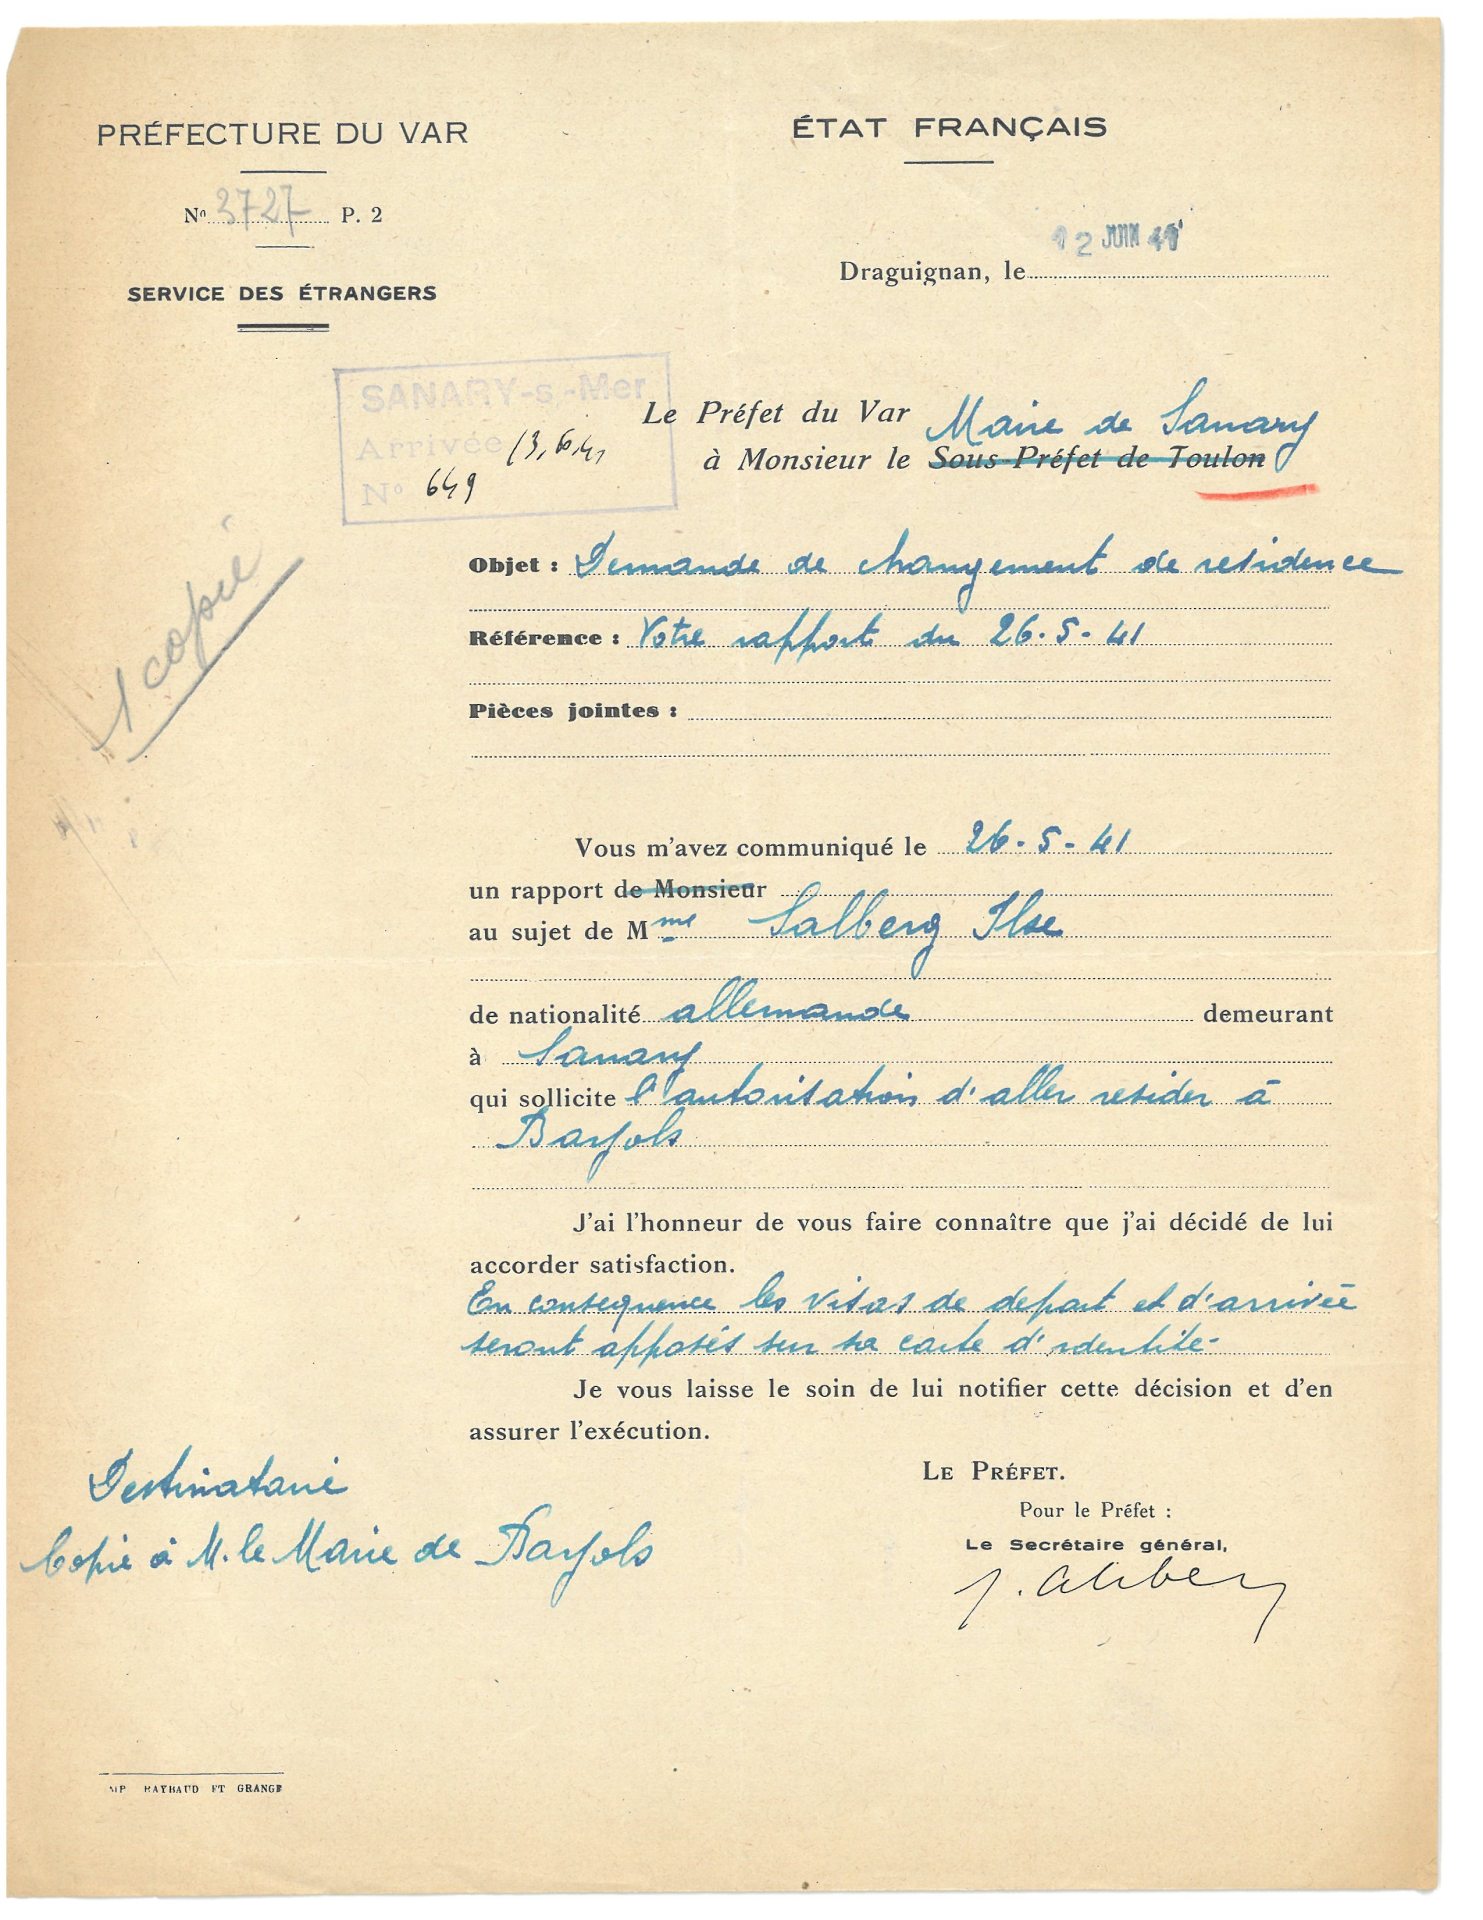 PRÉFECTURE DU VAR
Nº 3727 P. 2
SERVICE DES ÉTRANGERS
ÉTAT FRANÇAIS
Draguignan, le 12 JUIN 41
SANARY-s-Mer
Arrivée 13.6.41
Nº 649
Le Préfet du Var
Maire de Sanary
à Monsieur le Sous-Préfet de Toulon
1 copie
Objet : Demande de changement de residence
Référence : Votre rapport du 26-5-41
Pièces jointes :
Vous m'avez communiqué le 26-5-41
un rapport de Monsieur
au sujet de Mme Salberg Ilse
de nationalité allemande demeurant
à Sanary
qui sollicite l'autorisation d'aller resider à
Barjols
J'ai l'honneur de vous faire connaître que j'ai décidé de lui
accorder satisfaction.
En consequence les visas de depart et d'arrivée
seront apposés sur sa carte d'identité-
Je vous laisse le soin de lui notifier cette décision et d'en
assurer l'exécution.
Destinataire
Copie à M. le Maire de Barjols
LE PRÉFET.
Pour le Préfet :
Le Secrétaire général,
MP RAYBAUD ET GRANGE